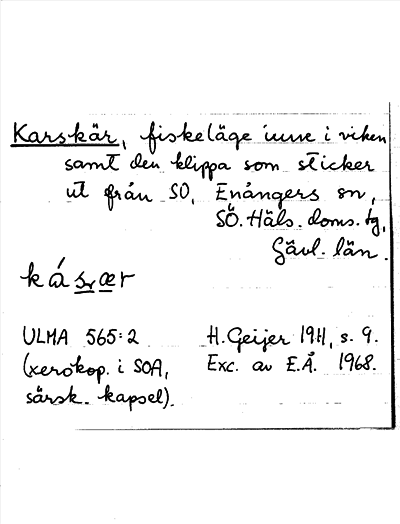 Karskär, fiskeläge inne i viken
samt den klippa som sticker
ut från SO, Enångers sn,
SÖ. Häls. doms. tg,
Gävl. län.
kásrær
ULMA 565:2
(xerokop. i SOA,
särsk. kapsel).
H. Geijer 1911, s. 9.
Exc. av E.Å. 1968.